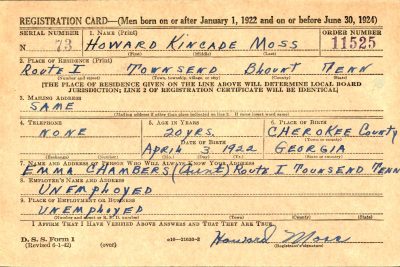 REGISTRATION CARD—(Men born on or after January 1, 1922 and on or before June 30, 1924)
SERIAL NUMBER 1. NAME (Print) ORDER NUMBER
N 73 HOWARD KINCADE MOSS 11525
(First) (Middle) (Last)
2. PLACE OF RESIDENCE (Print)
ROUTE I TOWNSEND BLOUNT TENN
(Number and street) (Town, township, village, or city) (County) (State)
[THE PLACE OF RESIDENCE GIVEN ON THE LINE ABOVE WILL DETERMINE LOCAL BOARD
JURISDICTION; LINE 2 OF REGISTRATION CERTIFICATE WILL BE IDENTICAL]
3. MAILING ADDRESS
SAME
[Mailing address if other than place indicated on line 2. If same insert word same]
4. TELEPHONE 5. AGE IN YEARS 6. PLACE OF BIRTH
NONE 20 YRS. CHEROKEE COUNTY
DATE OF BIRTH (Town or county)
APRIL 3 1922 GEORGIA
(Exchange) (Number) (Mo.) (Day) (Yr.) (State or country)
7. NAME AND ADDRESS OF PERSON WHO WILL ALWAYS KNOW YOUR ADDRESS
EMMA CHAMBERS (Aunt) ROUTE I TOWNSEND TENN
8. EMPLOYER'S NAME AND ADDRESS
UNEMPLOYED
9. PLACE OF EMPLOYMENT OR BUSINESS
UNEMPLOYED
(Number and street or R. F. D. number) (Town) (County) (State)
I AFFIRM THAT I HAVE VERIFIED ABOVE ANSWERS AND THAT THEY ARE TRUE.
D. S. S. Form 1
(Revised 6-1-42) (over) Howard Moss
(Registrant's signature)